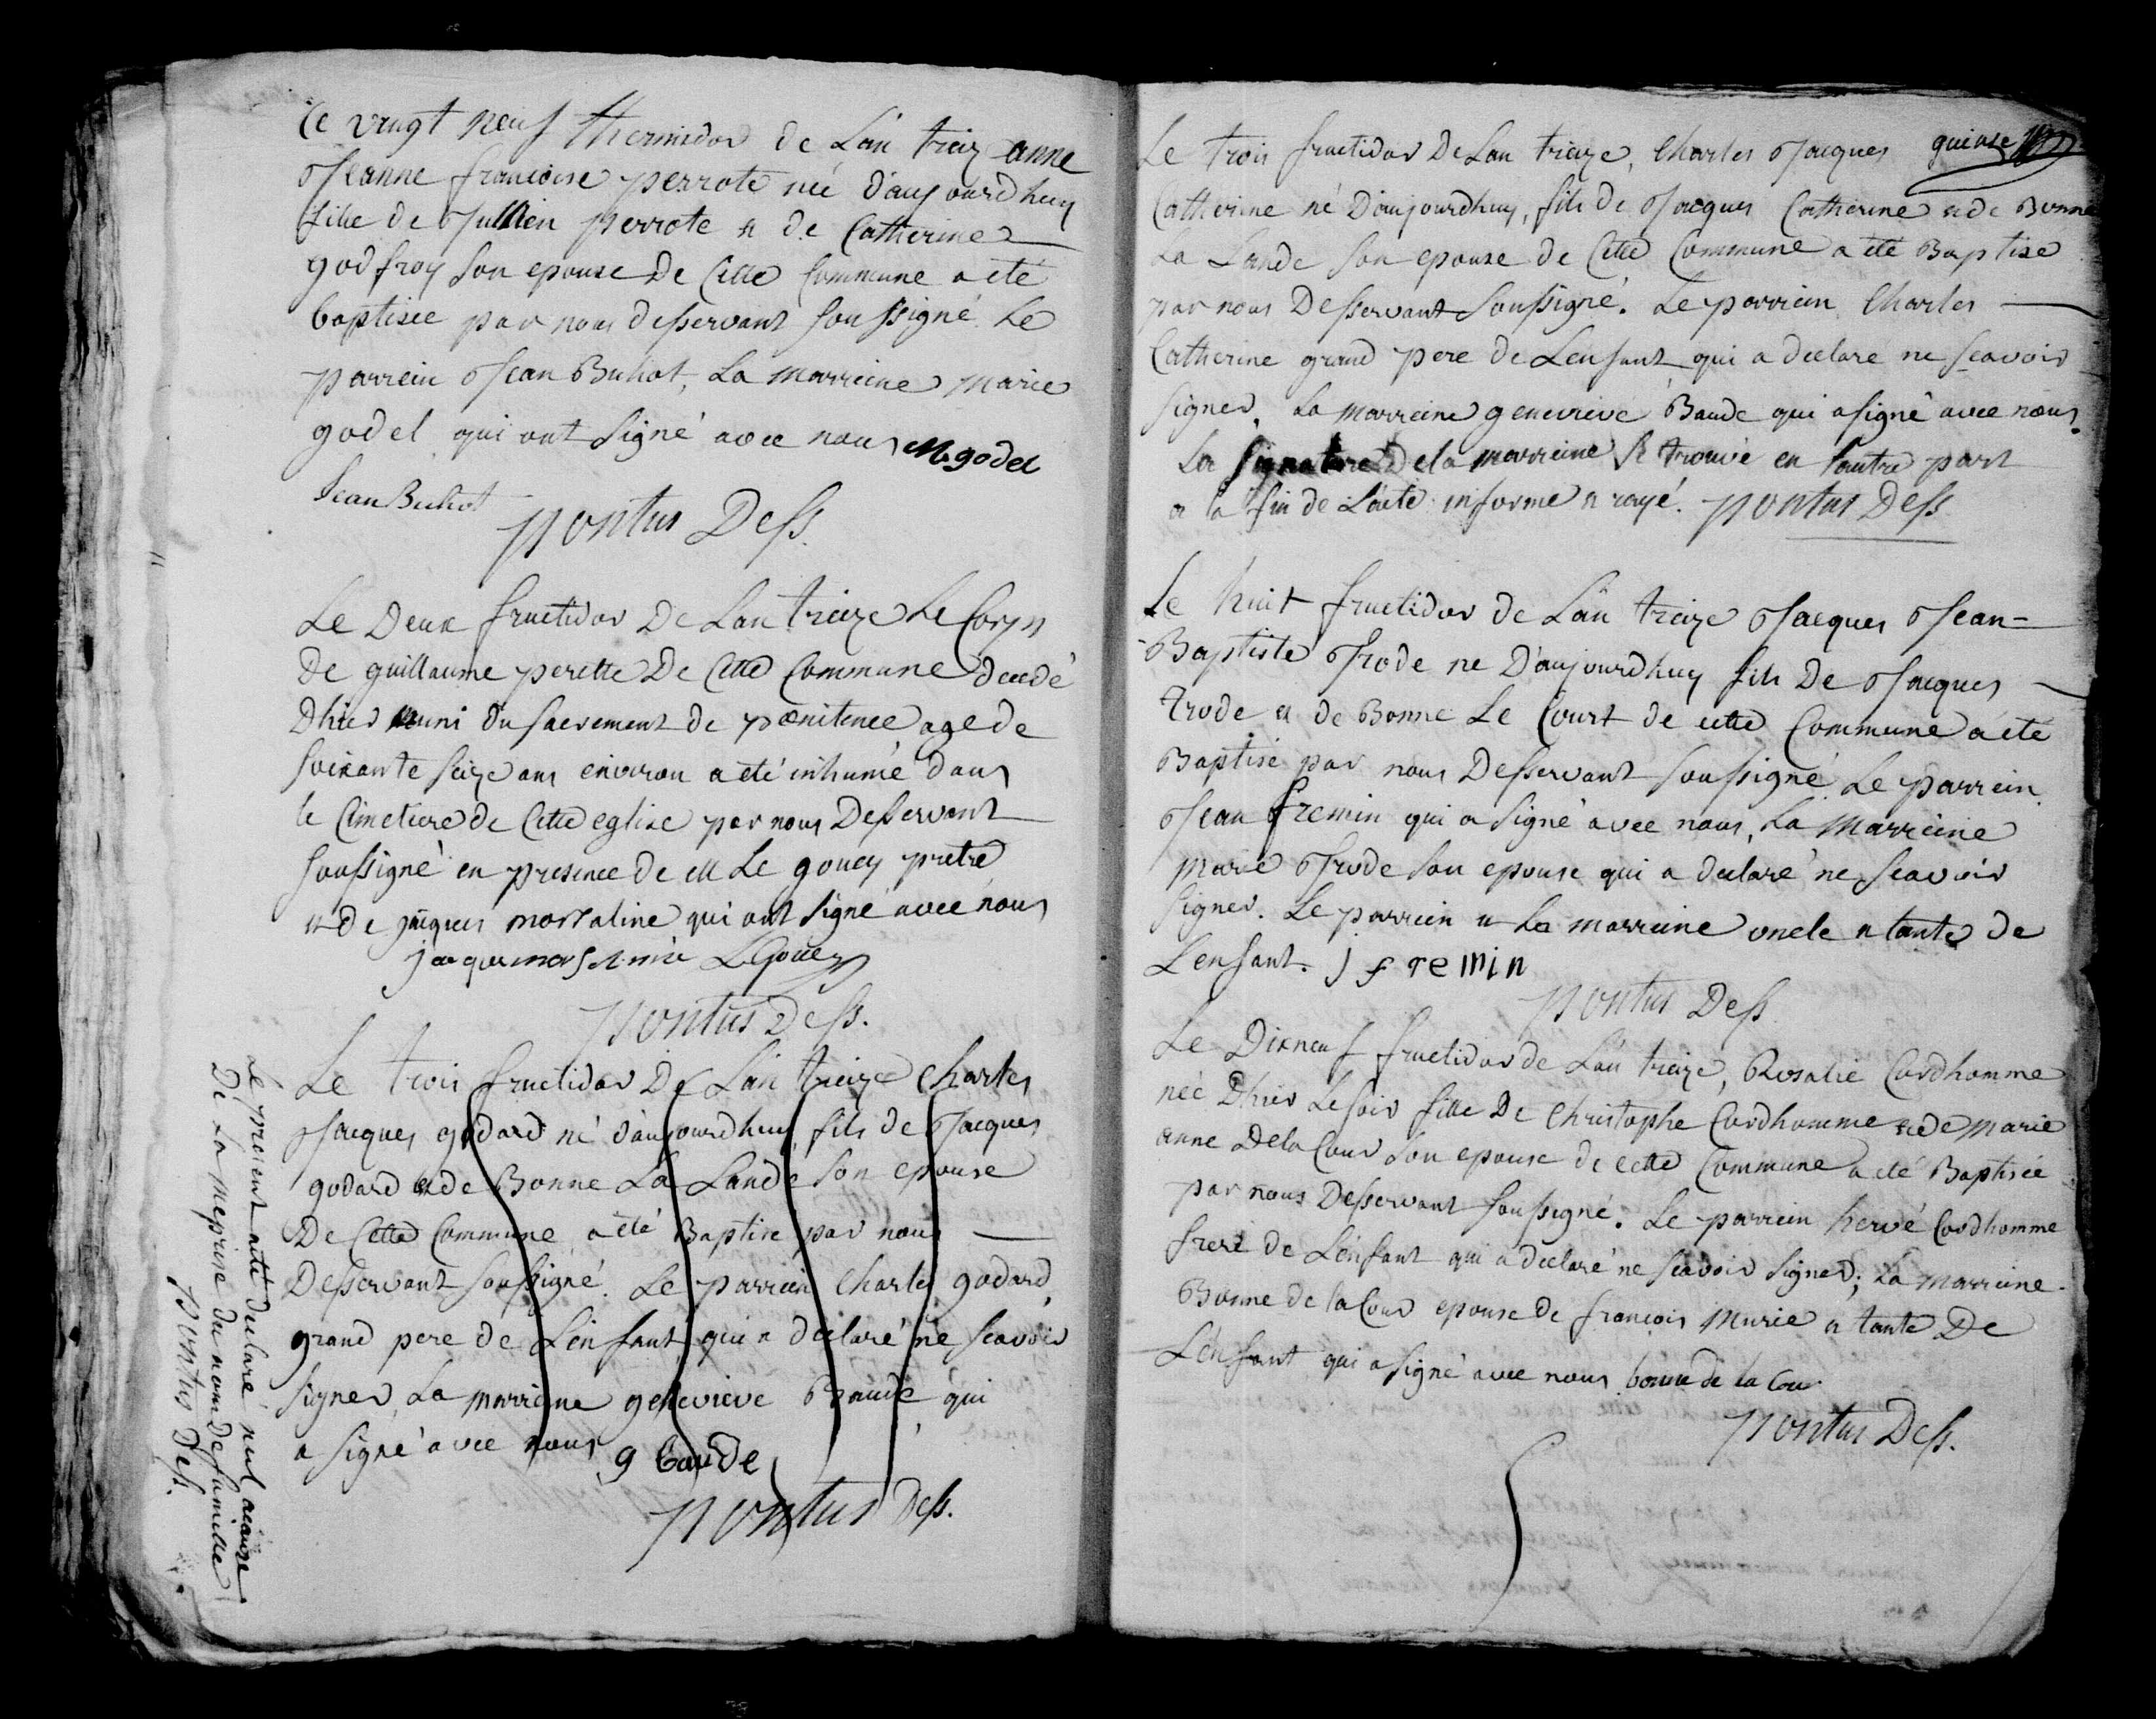 Le vingt neuf thermidor de L'an treize anne
Jeanne françoise perrote née d'aujourdhuy
fille de Jullien perrote et de Catherine
godfroy son epouse De Cette Commune a eté
baptisée par nous desservant soussigné Le
parrein Jean Buhot, La marreine marie
godel qui ont signé avec nous M godel
Jean Buhot
pontus Dess.
Le Deux fructidor De L'an treize Le Corps
De guillaume perette De Cette Commune decedé
D'hier muni du sacrement de pœnitence age de
soixante seize ans environ a eté inhumé dans
le Cimetiere de Cette eglise par nous Desservant
soussigné en presence de M Le gouey pretre
et de jacques morsaline qui ont signé avec nous
jacque morsaline LeGouey
pontus Dess.
Le trois fructidor De L'an treize Charles
Jacques godard né d'aujourdhuy, fils de Jacques
godard et de Bonne La Lande son epouse
De Cette Commune a eté Baptisé par nous
Desservant soussigné. Le parrein Charles godard,
grand pere de L'enfant qui a déclaré ne scavoir
signer, La marreine geneviève Baude qui
a signé avec nous g baude
pontus Dess.
Le present acte déclaré nul acause
De La meprise du nom de famille
pontus Dess.
guiase
Le trois fructidor De Lan treize, Charles Jacques
Catherine né D'aujourdhuy, fils de Jacques Catherine et de Bonne
La Lande son epouse de Cette Commune a eté Baptisé
par nous Desservant soussigné. Le parrein Charles
Catherine grand pere de L'enfant qui a declaré ne scavoir
signer. La marreine genevieve Baude qui a signé avec nous.
La signature De la marreine se trouve en l'autre part
a la fin de L'acte informe et rayé. pontus Dess
Le huit fructidor de L'an treize Jacques Jean-
-Baptiste Trode né D'aujourdhuy fils De Jacques
trode et de Bonne Le Court de cette Commune a eté
Baptisé par nous Desservant soussigné Le parrein
Jean fremin qui a signé avec nous, La Marreine
Marie Trode son epouse qui a declaré ne scavoir
signer. Le parrein et La marreine oncle et tante de
L'enfant. J fremin
pontus Dess
Le Dixneuf fructidor de L'an treize, Rosalie Cordhomme
née D'hier Le soir fille De Christophe Cordhomme et de marie
anne Dela Cour son epouse de cette Commune a eté Baptisée
par nous Desservant soussigné. Le parrein hervé Cordhomme
frere de L'enfant qui a declaré ne scavoir signer; La marreine
Bonne de la Cour epouse de françois Murie et tante De
L'enfant qui a signé avec nous bonne de la Cour
pontus Dess.